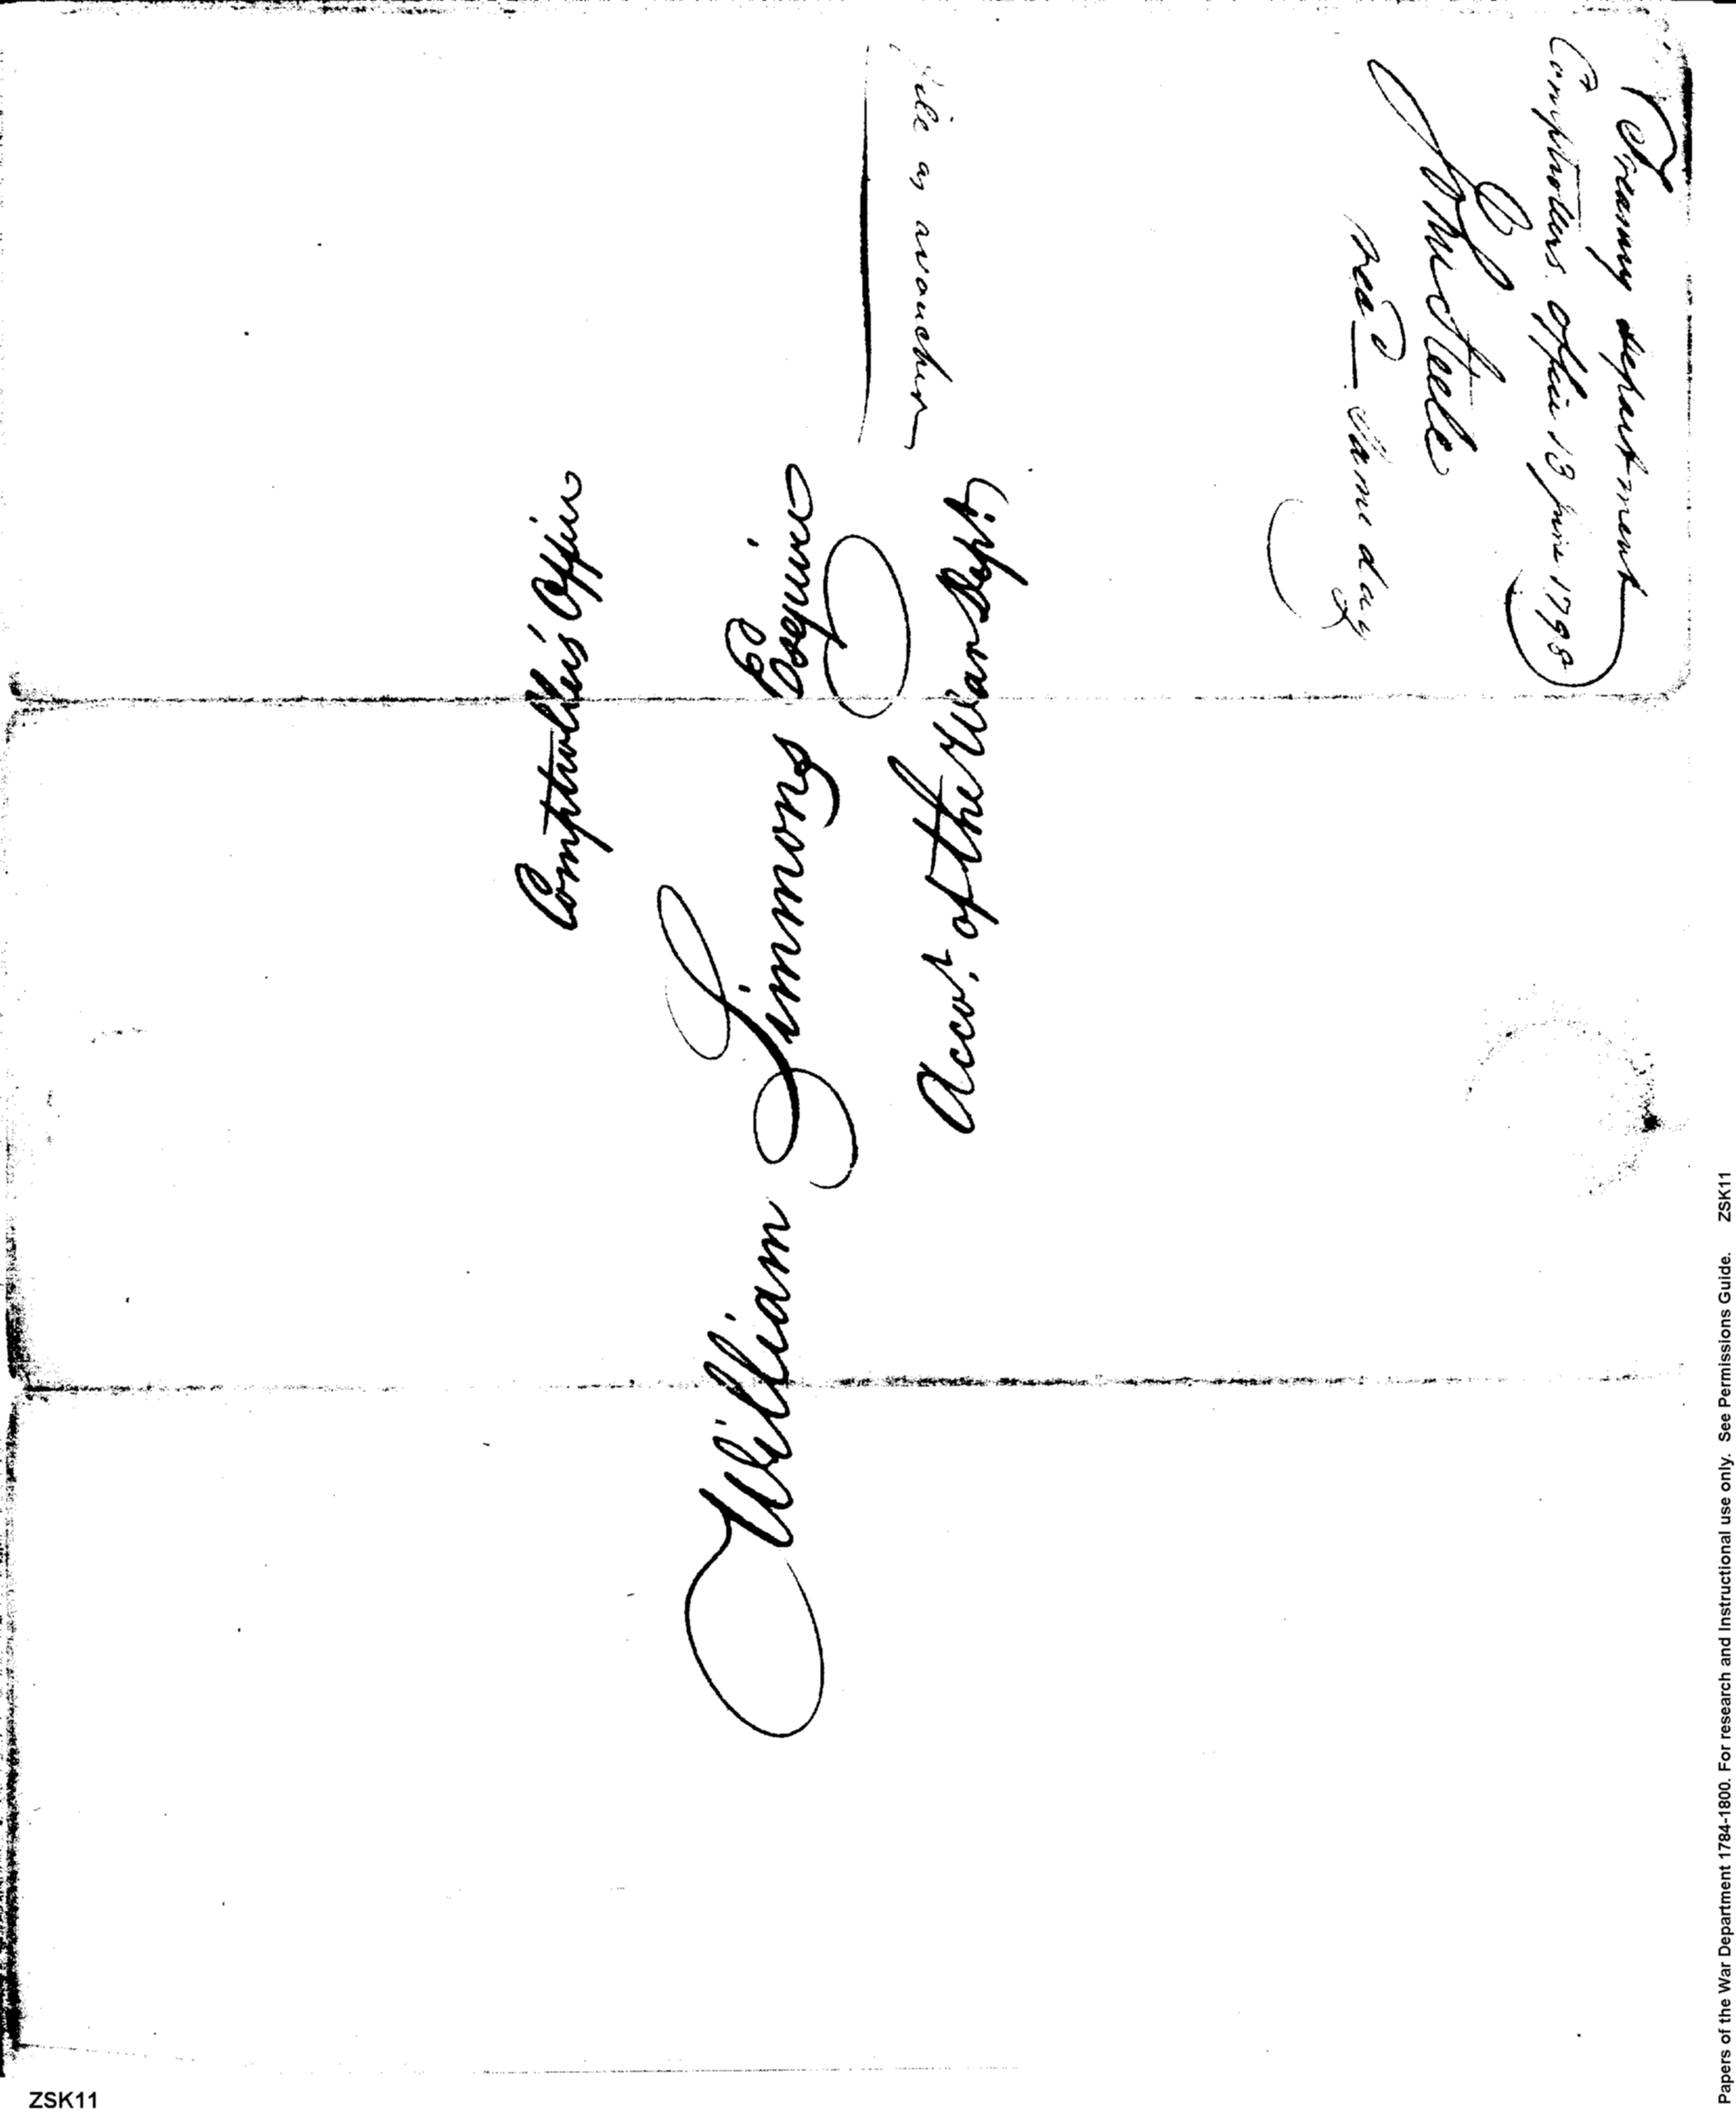 Treasury department
Comptrollers Office 13 June 1798
John Steele
Recd same day
file as a voucher
Comptroller's Office
William Simmons Esquire
Accot. of the War Dept.
Papers of the War Department 1784-1800. For research and Instructional use only. See Permissions Guide. ZSK11
ZSK11